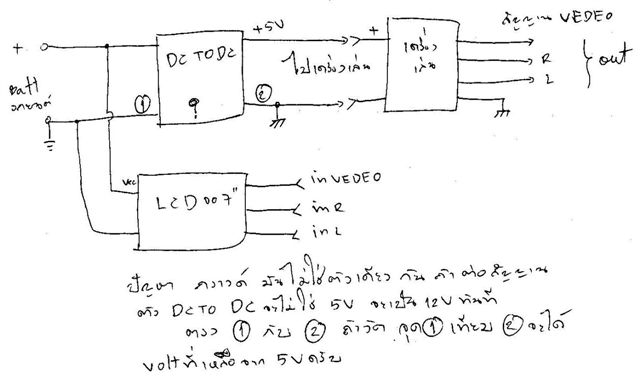 สัญญาณ VEDEO
+
Batt
รถยนต์
①
DC TO DC
+5V
②
ไปเครื่องเล่น
+
เครื่อง
เล่น
R
L
out
Vcc
LCD 007"
in VEDEO
in R
in L
ปัญหา กราวด์ มันไม่ใช่ตัวเดียว กัน ถ้าต่อสัญญาณ
ตัว DC TO DC จะไม่ใช่ 5V จะเป็น 12V ทันที
ตรง ① กับ ② ถ้าวัด จุด ① เทียบ ② จะได้
volt ที่เหลือจาก 5V ครับ